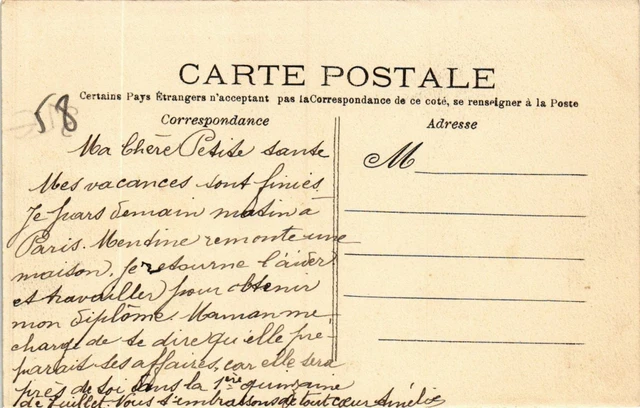 58
CARTE POSTALE
Certains Pays Étrangers n'acceptant pas la Correspondance de ce coté, se renseigner à la Poste
Correspondance
Adresse
M
Ma Chère Petite tante
Mes vacances sont finies
Je pars demain matin à
Paris. Mendine remonte une
maison. Je retourne l'aider
et travailler pour obtenir
mon diplôme. Maman me
charge de te dire qu'elle pré-
parait ses affaires, car elle sera
près de toi dans la 1ère quinzaine
de Juillet. Nous t'embrassons de tout cœur Amélie